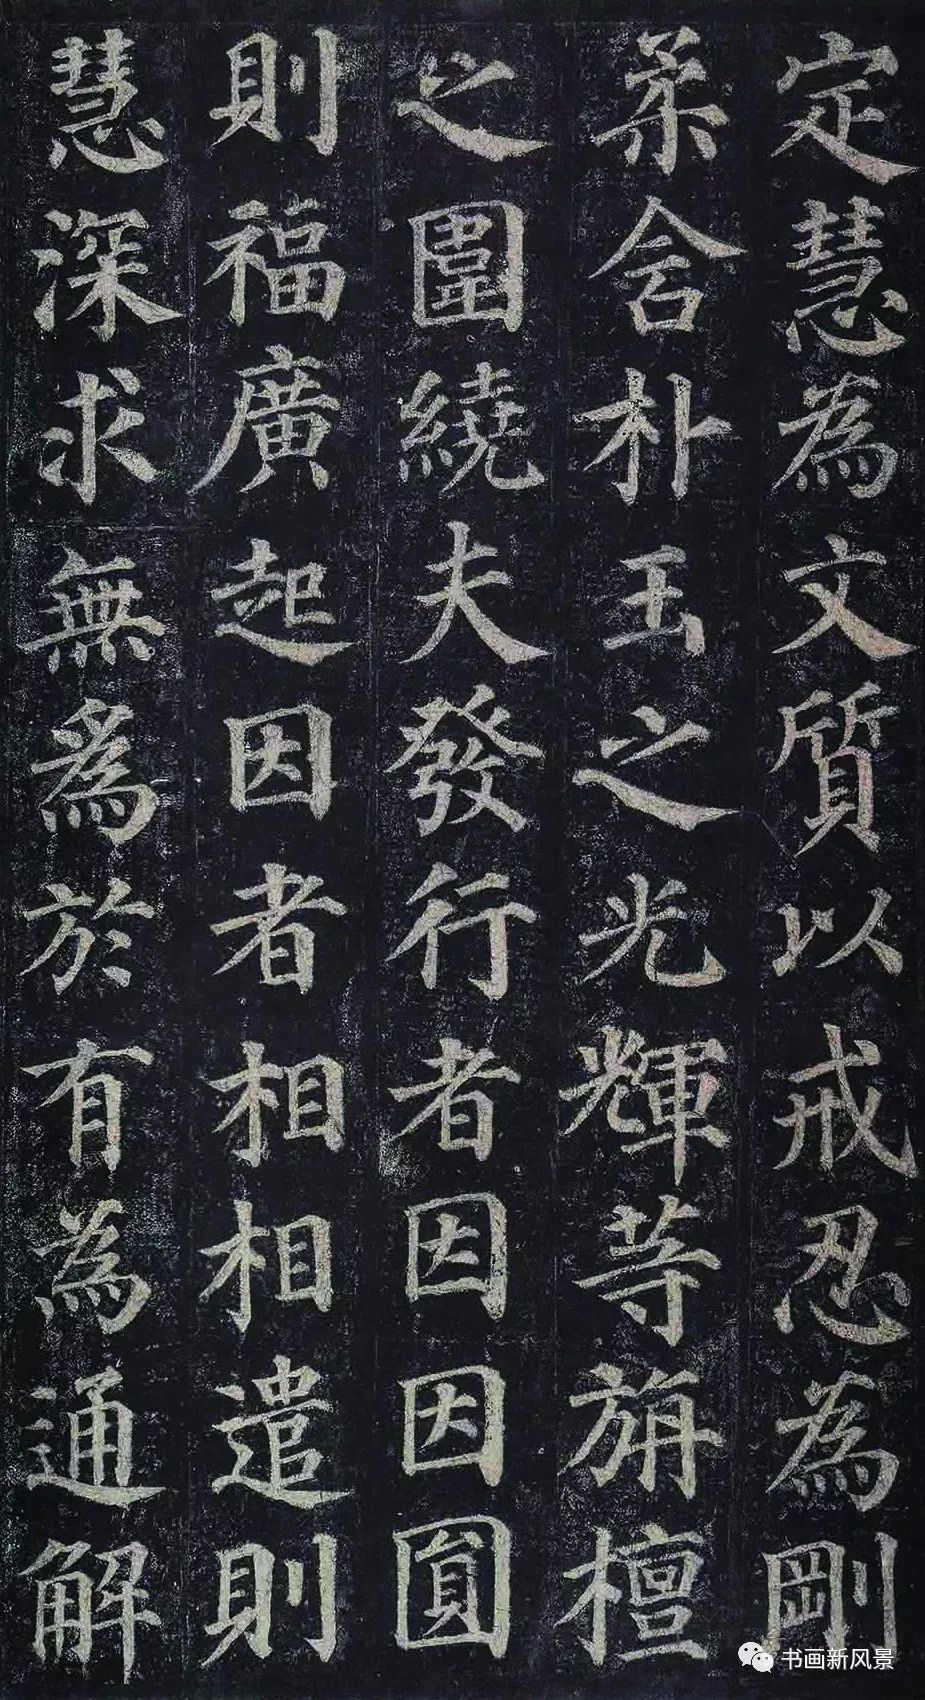 定慧為文質以戒忍為剛
柔含朴玉之光輝等旃檀
之圍繞夫發行者因因圓
則福廣起因者相相遣則
慧深求無為於有為通解
书画新风景